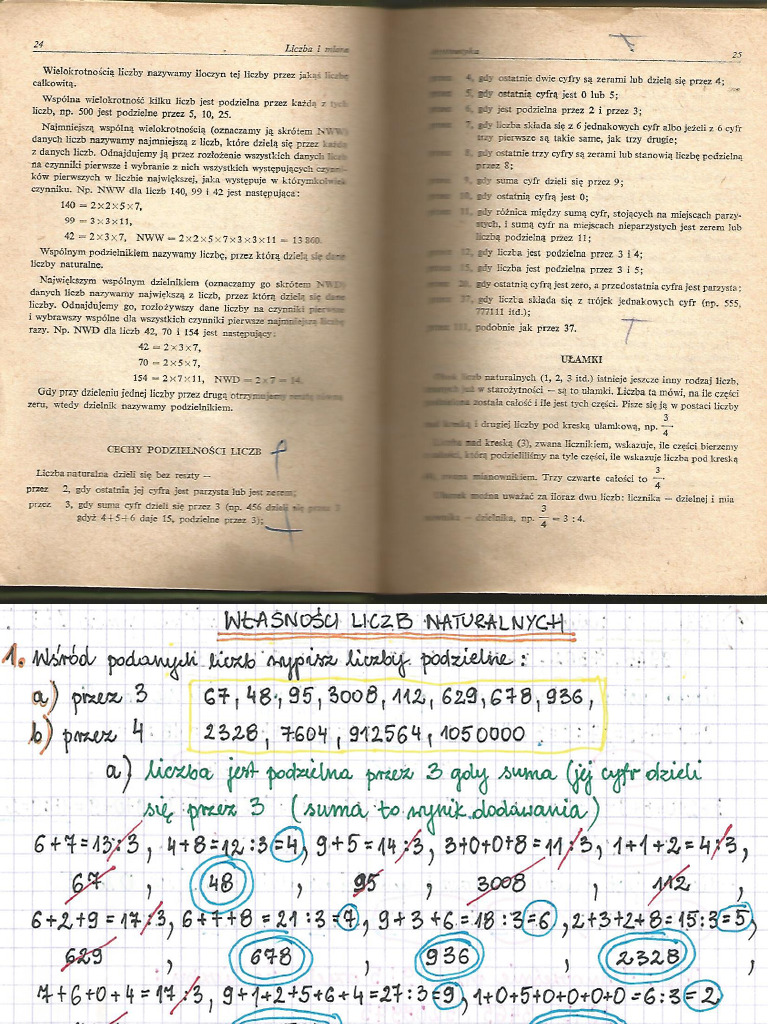 24
Liczba i
Wielokrotnością liczby nazywamy iloczyn tej liczby przez jakąś liczbę
całkowitą.
Wspólna wielokrotność kilku liczb jest podzielna przez każdą z tych
liczb, np. 500 jest podzielne przez 5, 10, 25.
Najmniejszą wspólną wielokrotnością (oznaczamy ją skrótem NWW)
danych liczb nazywamy najmniejszą z liczb, które dzielą się przez każdą
z danych liczb. Odnajdujemy ją przez rozłożenie wszystkich danych liczb
na czynniki pierwsze i wybranie z nich wszystkich występujących
ków pierwszych w liczbie największej, jaka występuje w którymkolwiek
czynniku. Np. NWW dla liczb 140, 99 i 42 jest następująca:
140 = 2×2×5×7,
99 = 3×3×11,
42 = 2×3×7, NWW = 2×2×5×7×3×3×11 = 13 860.
Wspólnym podzielnikiem nazywamy liczbę, przez którą dzielą się dane
liczby naturalne.
Największym wspólnym dzielnikiem (oznaczamy go skrótem NWD)
danych liczb nazywamy największą z liczb, przez którą dzielą się dane
liczby. Odnajdujemy go, rozłożywszy dane liczby na czynniki pierwsze
i wybrawszy wspólne dla wszystkich czynniki pierwsze najmniejszą liczbę
razy. Np. NWD dla liczb 42, 70 i 154 jest następujący:
42 = 2×3×7,
70 = 2×5×7,
154 = 2×7×11, NWD = 2×7 = 14.
Gdy przy dzieleniu jednej liczby przez drugą otrzymujemy resztę równą
zeru, wtedy dzielnik nazywamy podzielnikiem.
CECHY PODZIELNOŚCI LICZB
Liczba naturalna dzieli się bez reszty —
przez 2, gdy ostatnia jej cyfra jest parzysta lub jest zerem;
przez 3, gdy suma cyfr dzieli się przez 3 (np. 456 dzieli się przez 3
gdyż 4+5+6 daje 15, podzielne przez 3);
25
4, gdy ostatnie dwie cyfry są zerami lub dzielą się przez 4;
5, gdy ostatnią cyfrą jest 0 lub 5;
6, gdy jest podzielna przez 2 i przez 3;
7, gdy liczba składa się z 6 jednakowych cyfr albo jeżeli z 6 cyfr
trzy pierwsze są takie same, jak trzy drugie;
8, gdy ostatnie trzy cyfry są zerami lub stanowią liczbę podzielną
przez 8;
9, gdy suma cyfr dzieli się przez 9;
10, gdy ostatnią cyfrą jest 0;
11, gdy różnica między sumą cyfr, stojących na miejscach parzy-
stych, i sumą cyfr na miejscach nieparzystych jest zerem lub
liczbą podzielną przez 11;
12, gdy liczba jest podzielna przez 3 i 4;
15, gdy liczba jest podzielna przez 3 i 5;
20, gdy ostatnią cyfrą jest zero, a przedostatnia cyfra jest parzysta;
37, gdy liczba składa się z trójek jednakowych cyfr (np. 555,
777111 itd.);
111, podobnie jak przez 37.
UŁAMKI
naturalnych (1, 2, 3 itd.) istnieje jeszcze inny rodzaj liczb,
już w starożytności — są to ułamki. Liczba ta mówi, na ile części
została całość i ile jest tych części. Pisze się ją w postaci liczby
i drugiej liczby pod kreską ułamkową, np. 3/4
nad kreską (3), zwana licznikiem, wskazuje, ile części bierzemy
którą podzieliliśmy na tyle części, ile wskazuje liczba pod kreską
mianownikiem. Trzy czwarte całości to 3/4
można uważać za iloraz dwu liczb: licznika — dzielnej i mia
dzielnika, np. 3/4 = 3 : 4.
WŁASNOŚCI LICZB NATURALNYCH
1. Wśród podanych liczb wypisz liczby podzielne :
a) przez 3 67, 48, 95, 3008, 112, 629, 678, 936,
b) przez 4 2328, 7604, 912564, 1050000
a) liczba jest podzielna przez 3 gdy suma (jej cyfr dzieli
się przez 3 (suma to wynik dodawania)
6+7=13:3, 4+8=12:3=4, 9+5=14:3, 3+0+0+8=11:3, 1+1+2=4:3,
67, 48, 95, 3008, 112,
6+2+9=17:3, 6+7+8=21:3=7, 9+3+6=18:3=6, 2+3+2+8=15:3=5,
629, 678, 936, 2328,
7+6+0+4=17:3, 9+1+2+5+6+4=27:3=9, 1+0+5+0+0+0+0=6:3=2